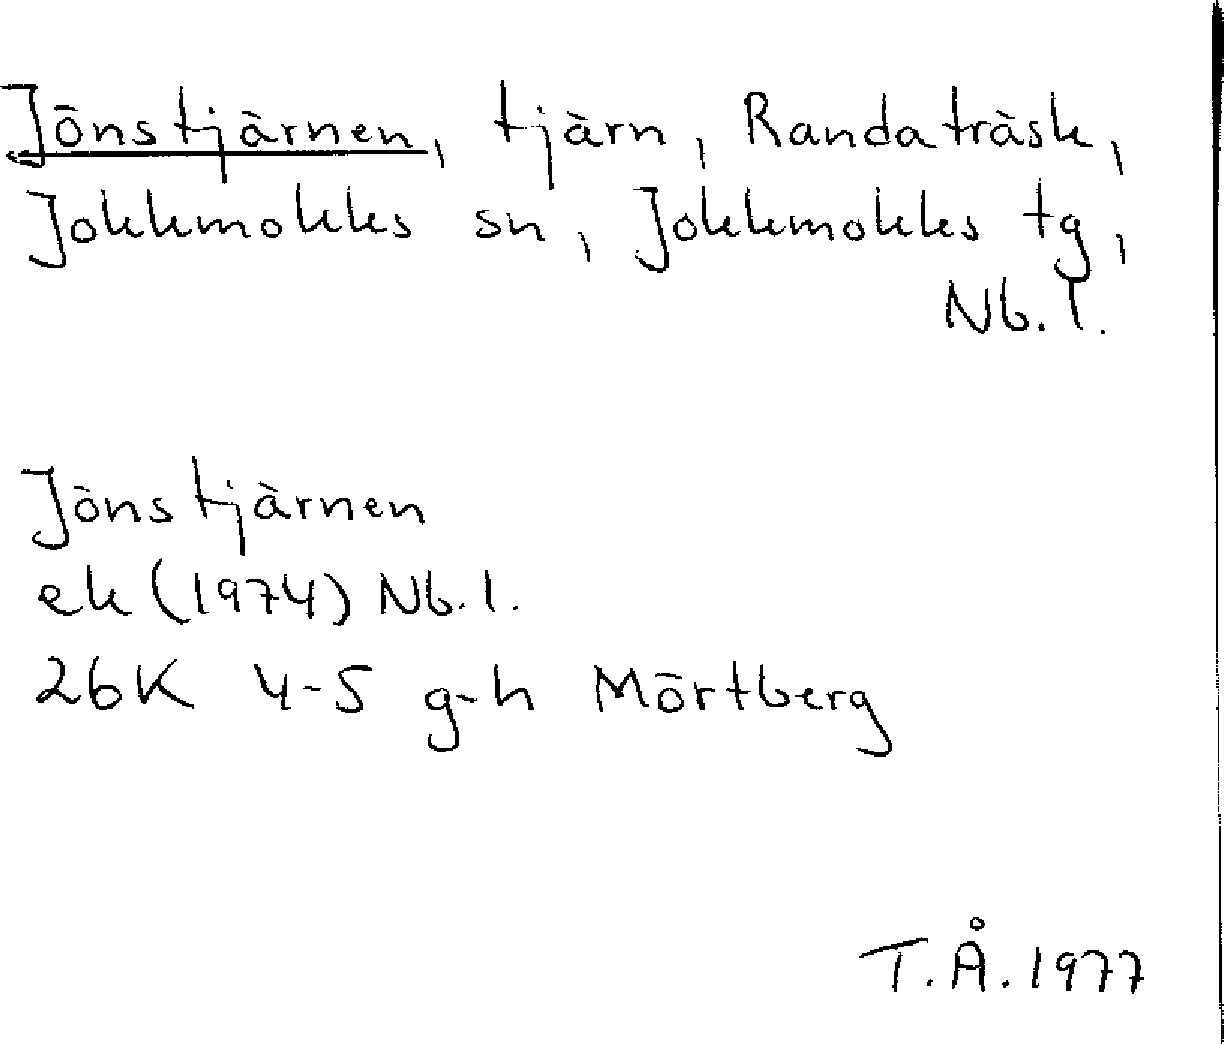 Jönstjärnen, tjärn, Randaträsk,
Jokkmokks sn, Jokkmokks tg,
Nb. l.
Jönstjärnen
ek (1974) Nb. l.
26K 4-5 g-h Mörtberg
T.Å. 1977